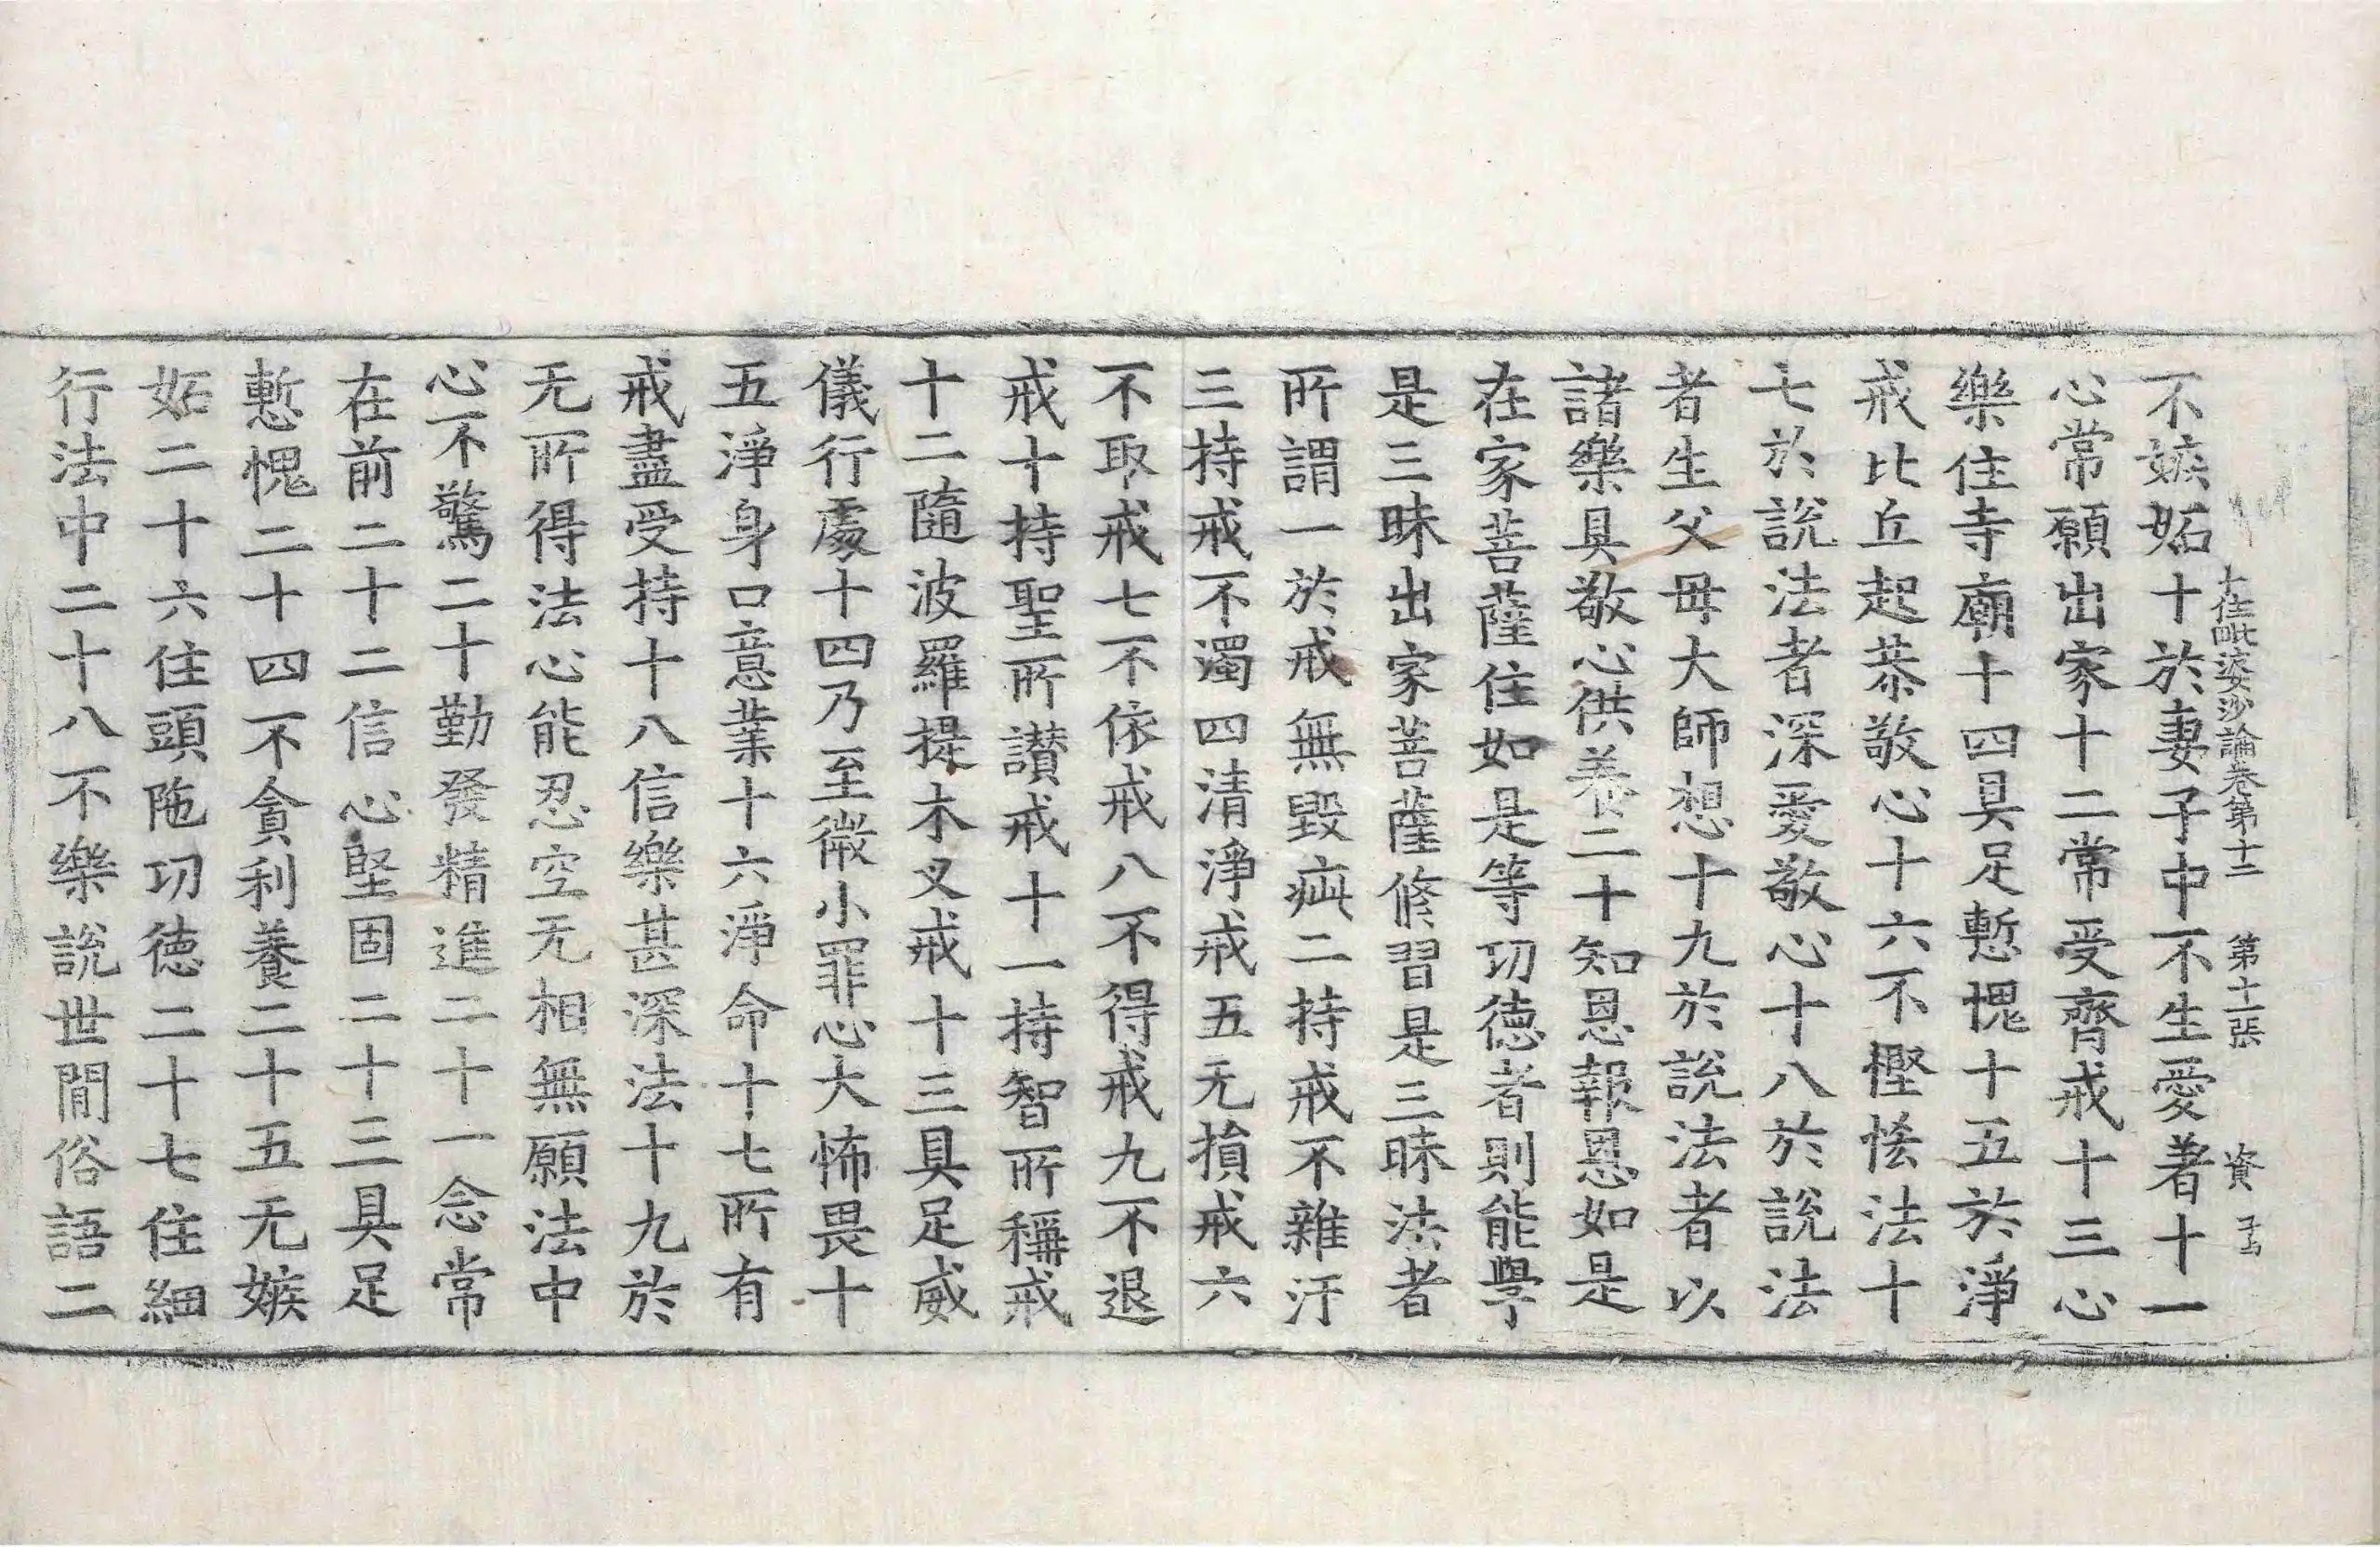 十住毗婆沙論卷第十二 第十一張 資
不嫉妬十於妻子中不生愛著十一
心常願出家十二常受齊戒十三心
樂住寺廟十四具足慙愧十五於淨
戒比丘起恭敬心十六不慳悋法十
七於說法者深愛敬心十八於說法
者生父母大師想十九於說法者以
諸樂具敬心供養二十知恩報恩如是
在家菩薩住如是等功德者則能學
是三昧出家菩薩修習是三昧法者
所謂一於戒無毀疵二持戒不雜汙
三持戒不濁四清淨戒五无損戒六
不取戒七不依戒八不得戒九不退
戒十持聖所讃戒十一持智所稱戒
十二隨波羅提木叉戒十三具足威
儀行處十四乃至微小罪心大怖畏十
五淨身口意業十六淨命十七所有
戒盡受持十八信樂甚深法十九於
无所得法心能忍空无相無願法中
心不驚二十勤發精進二十一念常
在前二十二信心堅固二十三具足
慙愧二十四不貪利養二十五无嫉
妬二十六住頭陁功德二十七住細
行法中二十八不樂說世間俗語二